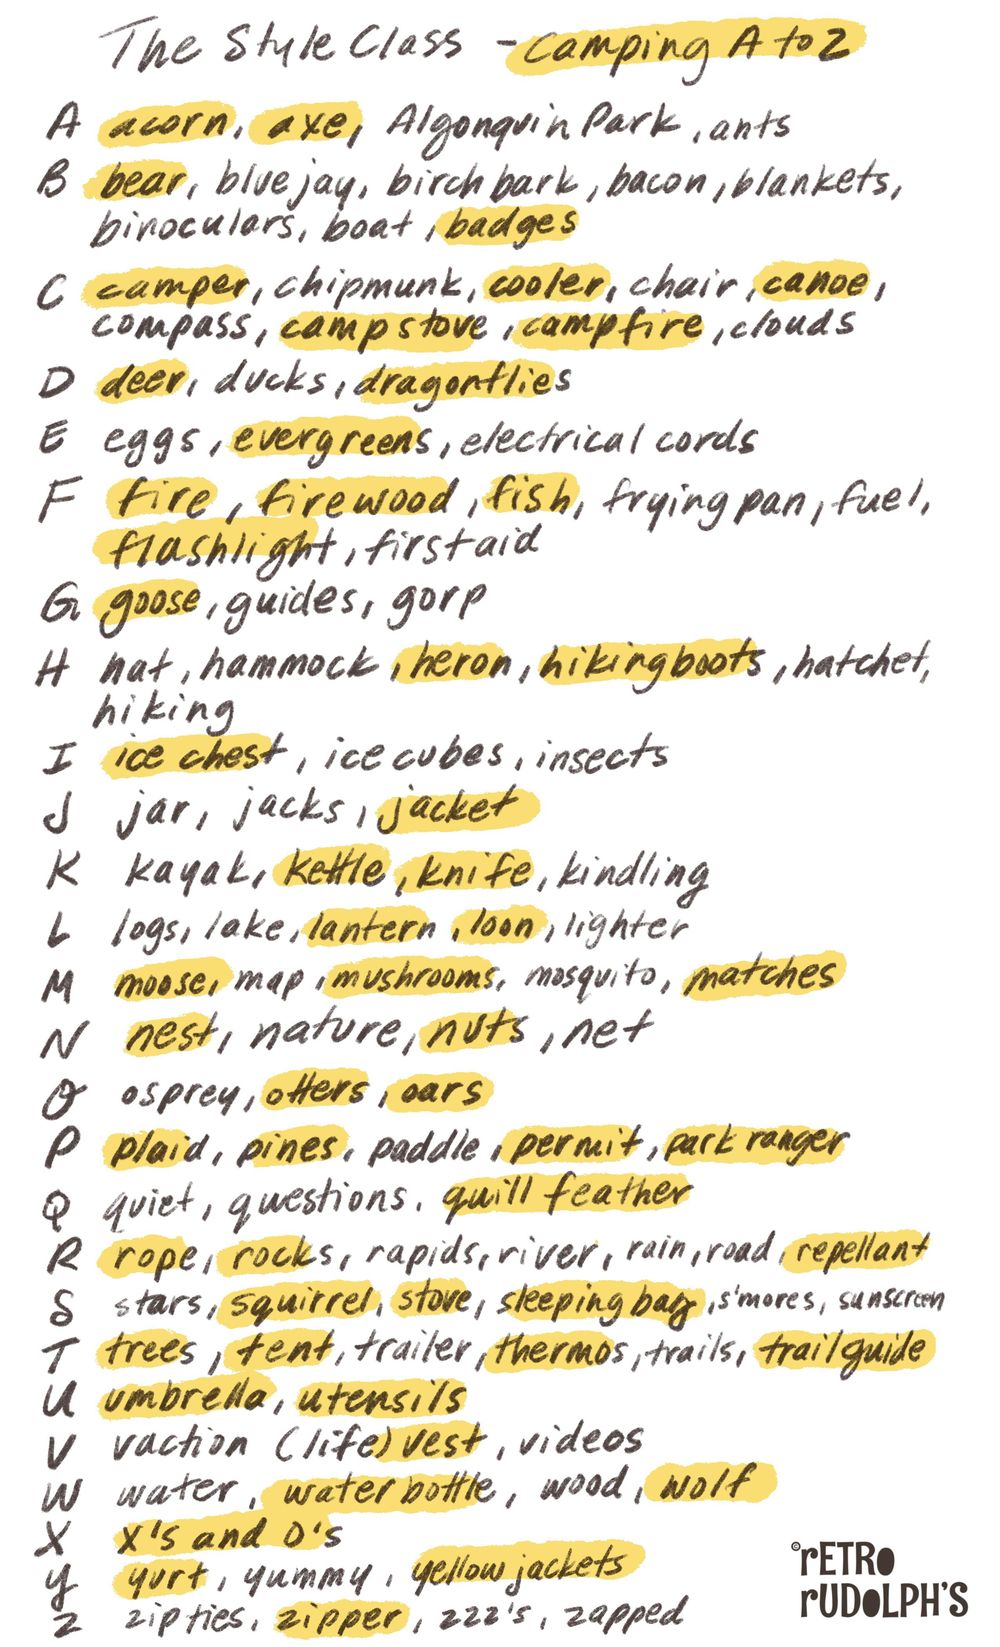 The Style Class - Camping A to Z
A acorn, axe, Algonquin Park, ants
B bear, blue jay, birch bark, bacon, blankets,
binoculars, boat, badges
C camper, chipmunk, cooler, chair, canoe,
compass, camp stove, campfire, clouds
D deer, ducks, dragonflies
E eggs, evergreens, electrical cords
F fire, firewood, fish, frying pan, fuel,
flashlight, first aid
G goose, guides, gorp
H hat, hammock, heron, hiking boots, hatchet,
hiking
I ice chest, ice cubes, insects
J jar, jacks, jacket
K kayak, kettle, knife, kindling
L logs, lake, lantern, loon, lighter
M moose, map, mushrooms, mosquito, matches
N nest, nature, nuts, net
O osprey, otters, oars
P plaid, pines, paddle, permit, park ranger
Q quiet, questions, quill feather
R rope, rocks, rapids, river, rain, road, repellant
S stars, squirrel, stove, sleeping bag, s'mores, sunscreen
T trees, tent, trailer, thermos, trails, trail guide
U umbrella, utensils
V vaction (life) vest, videos
W water, water bottle, wood, wolf
X X's and O's
y yurt, yummy, yellow jackets
z zip ties, zipper, zzz's, zapped
©rETRO
rUDOLPH'S